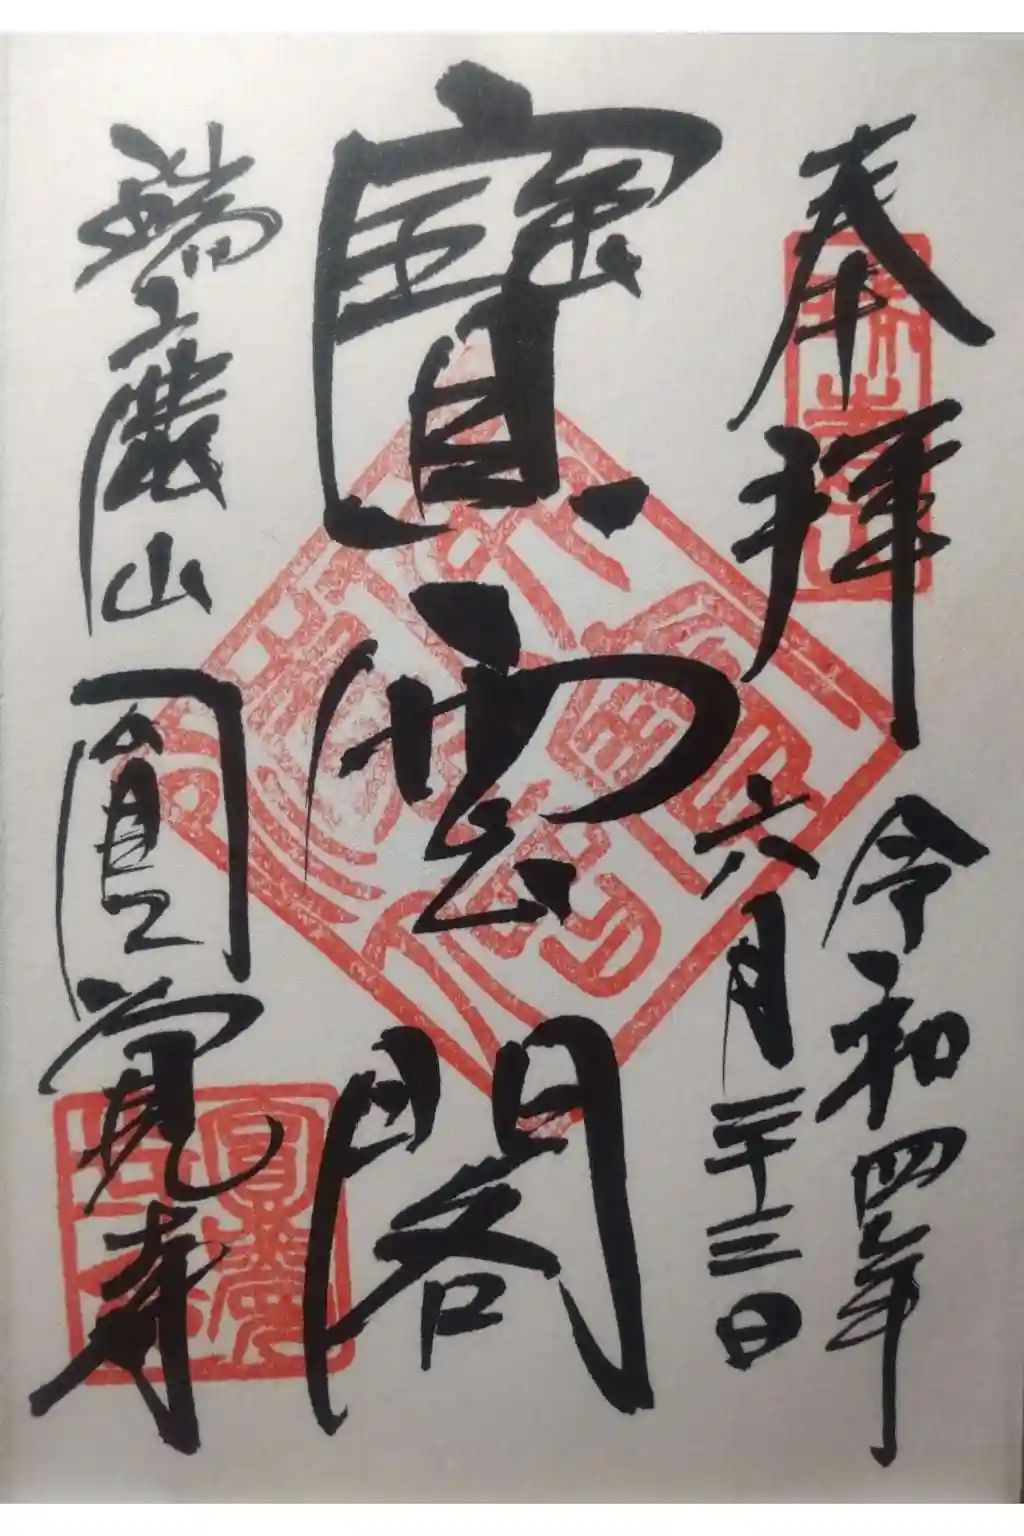 奉拝
令和四年
六月二十三日
寶雲閣
瑞巌山 圓覚寺